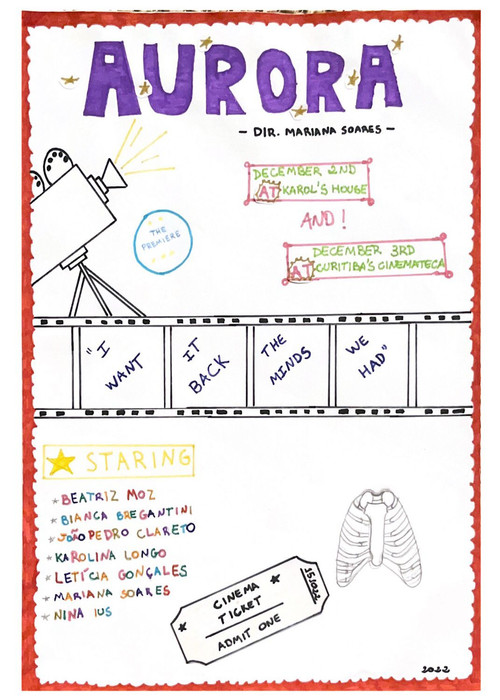 AURORA
- DIR. MARIANA SOARES -
DECEMBER 2ND
AT KAROL'S HOUSE
AND!
DECEMBER 3RD
AT CURITIBA'S CINEMATECA
THE
PREMIERE
"I WANT
IT BACK
THE MINDS
WE HAD"
STARING
BEATRIZ MOZ
BIANCA BREGANTINI
JOÃO PEDRO CLARETO
KAROLINA LONGO
LETÍCIA GONÇALES
MARIANA SOARES
NINA IUS
CINEMA
TICKET
ADMIT ONE
2022